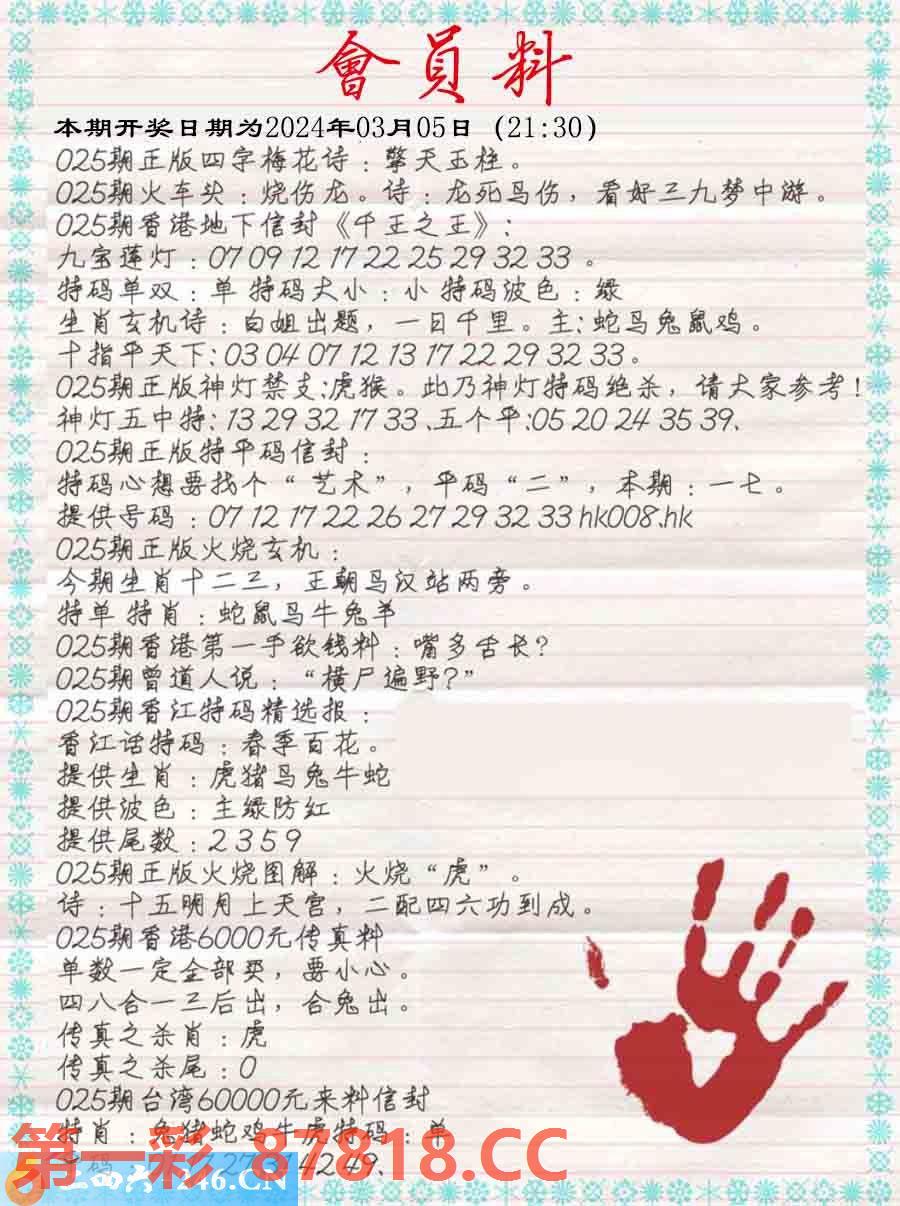 會員料
本期开奖日期为2024年03月05日 (21:30)
025期正版四字梅花诗：擎天玉柱。
025期火车头：烧伤龙。诗：龙死鸟伤，看好三九梦中游。
025期香港地下信封《千王之王》:
九宝莲灯：07 09 12 17 22 25 29 32 33 。
特码单双：单 特码大小：小 特码波色：绿
生肖玄机诗：白姐出题，一日千里。主:蛇马兔鼠鸡。
十指平天下:03 04 07 12 13 17 22 29 32 33。
025期正版神灯禁支:虎猴。此乃神灯特码绝杀，请大家参考!
神灯五中特: 13 29 32 17 33 .五个平:05 20 24 35 39.
025期正版特平码信封：
特码心想要找个“艺术”，平码“二”，本期：一七。
提供号码：07 12 17 22 26 27 29 32 33 hk008.hk
025期正版火烧玄机：
今期生肖十二三，王朝马汉站两旁。
特单 特肖：蛇鼠马牛兔羊
025期香港第一手欲钱料：嘴多舌长?
025期曾道人说：“横尸遍野?”
025期香江特码精选报：
香江话特码：春季百花。
提供生肖：虎猪马兔牛蛇
提供波色：主绿防红
提供尾数：2 3 5 9
025期正版火烧图解：火烧“虎”。
诗：十五明月上天宫，二配四六功到成。
025期香港6000元传真料
单数一定全部买，要小心。
四八合一三后出，合兔出。
传真之杀肖：虎
传真之杀尾：0
025期台湾60000元来料信封
特肖：兔猪蛇鸡牛虎特码：单
42 49.
第一彩 87818.CC
二四六 246.CN